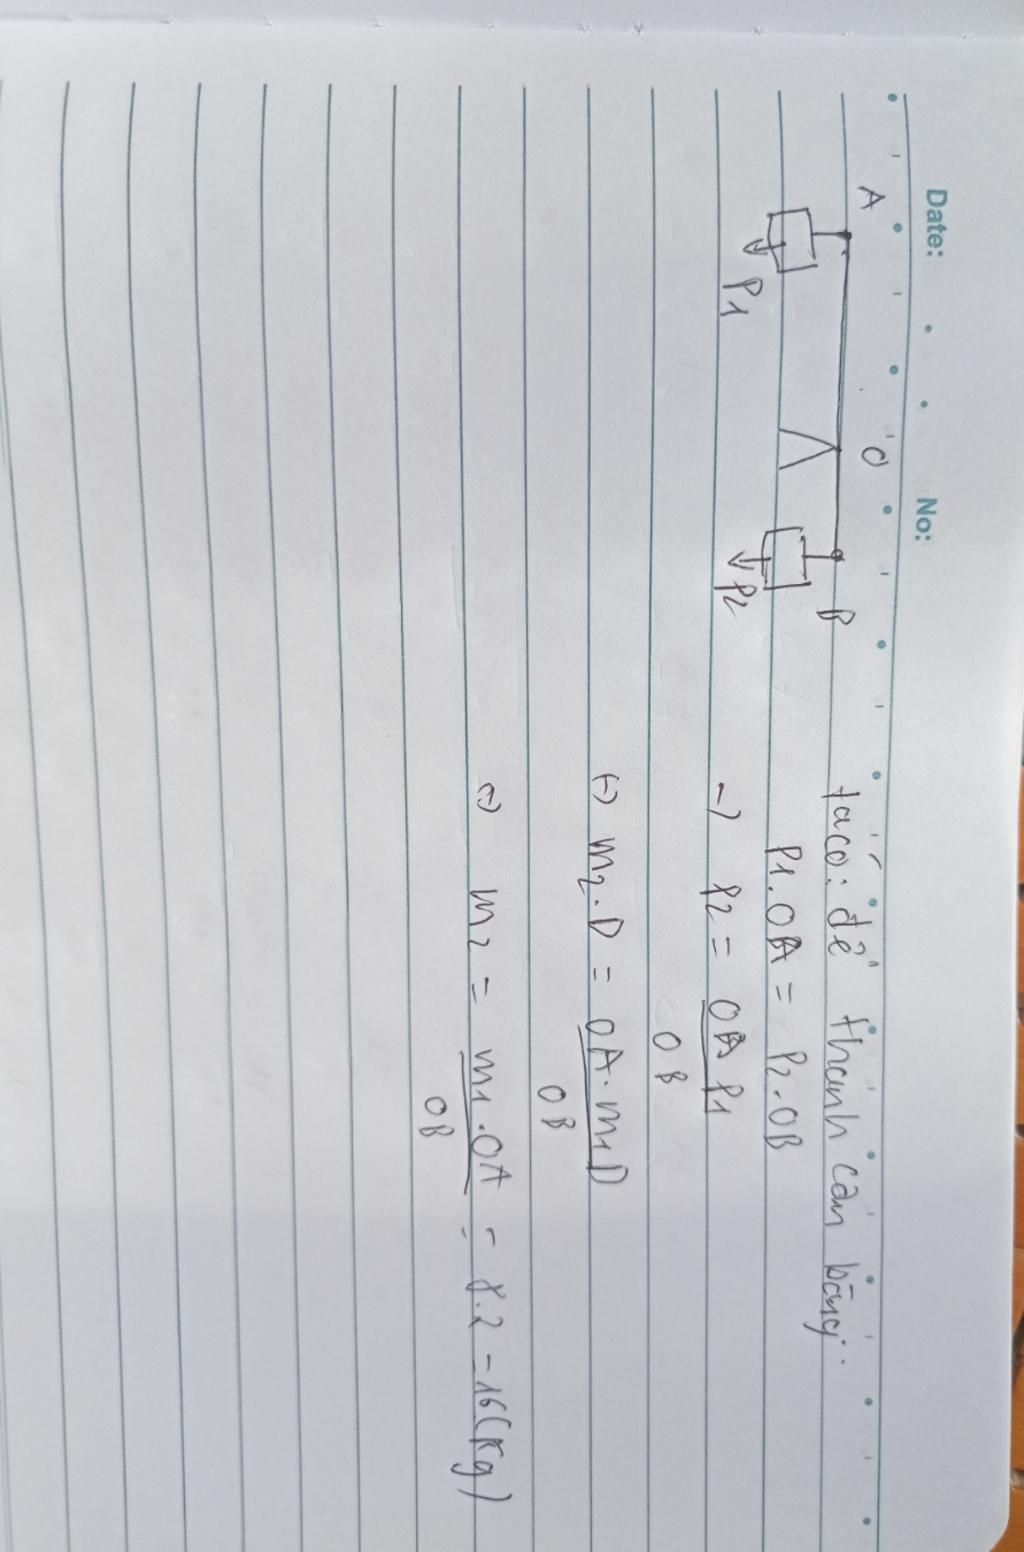 Date: No:
A O B
P1 P2
ta có: để thanh cân bằng.
P1.OA = P2.OB
→ P2 = OA P1
OB
(→) m2.D = OA.m1D
OB
(→) m2 = m1.OA = 8.2 = 16(kg)
OB